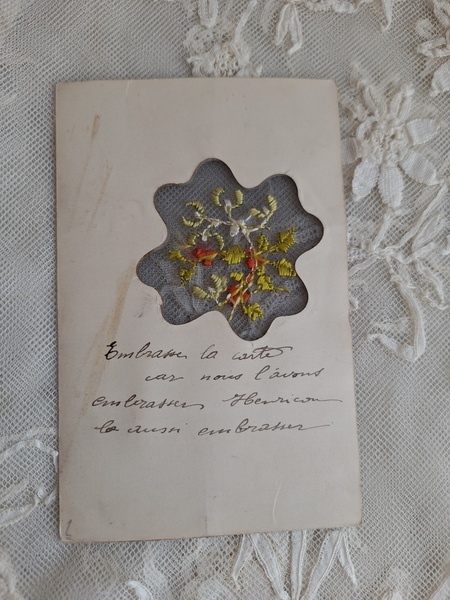 Embrasser la carte
car nous l'avons
embrasser Henricou
la aussi embrasser